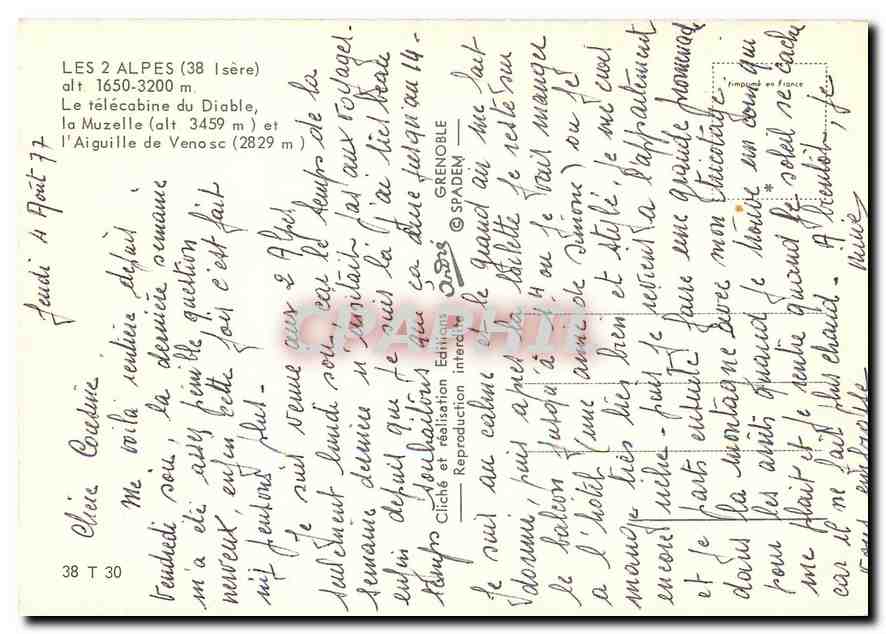 LES 2 ALPES (38 Isère)
alt. 1650-3200 m.
Le télécabine du Diable,
la Muzelle (alt 3459 m) et
l'Aiguille de Venosc (2829 m)
38 T 30
Cliché et réalisation Editions andré GRENOBLE
Reproduction interdite © SPADEM
Imprimé en France
CPAPHIL
Jeudi 4 Août 77
Chère Cousine
Me voilà rentière depuis
Vendredi soir, la dernière semaine
m'a été assez pénible question
nerveux, enfin cette fois c'est fait
n'y pensons plus -
Je suis venue aux 2 Alpes
seulement lundi soir, car le temps de la
semaine dernière n'incitait pas aux voyages.
enfin depuis que je suis là j'ai très beau
temps souhaitons que ça dure jusqu'au 14 -
Je suis au calme et le grand air me fait
dormir, puis après la toilette je reste sur
le balcon jusqu'à 11 h où je vais manger
à l'hôtel (une amie de Simone) où je
mange très très bien et stylé, je me crois
encore riche - puis je reviens à l'appartement
et je pars ensuite faire une grande promenade
dans la montagne avec mon tricotage
pour les arrêts quand je trouve un coin qui
me plait et je rentre quand le soleil se cache
car il ne fait plus chaud - A bientôt, je
vous embrasse